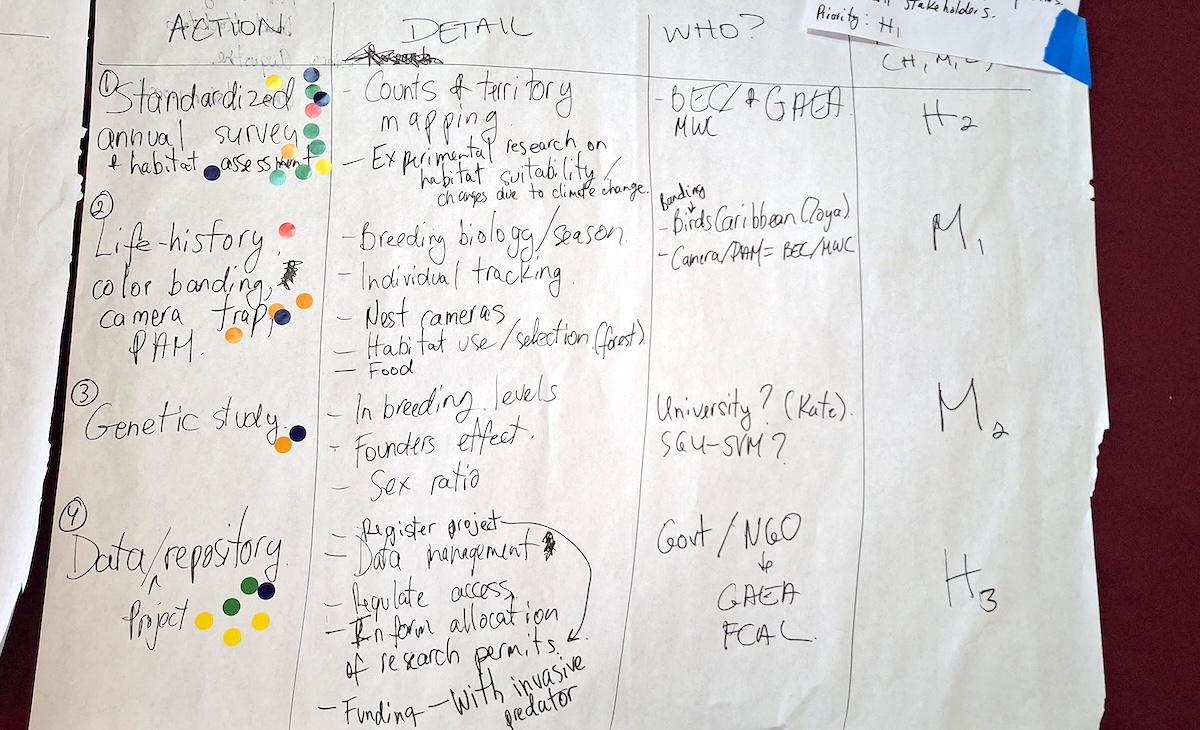 stakeholders.
Priority: H1
ACTION
DETAIL
WHO?
(H, M, L,)
① Standardized
annual survey
+ habitat assessment
- Counts & territory
mapping.
- Experimental research on
habitat suitability/
changes due to climate change.
- BEC/ & GAEA
MWC
H2
②
Life-history
color banding,
camera trap,
PAM.
- Breeding biology/season.
- Individual tracking
- Nest cameras
- Habitat use/selection (forest)
- Food
Banding
- BirdsCaribbean (Zoya)
- Camera/PAM = BEC/MWC
M1
③
Genetic study.
- In breeding levels
- Founders effect.
- Sex ratio
University? (Kate).
SGU-SVM?
M2
④
Data/repository.
^
Project
- Register project
- Data management
- Regulate access,
- Inform allocation
of research permits.
- Funding - With invasive
predator
Govt / NGO
GAEA
FCAL.
H3